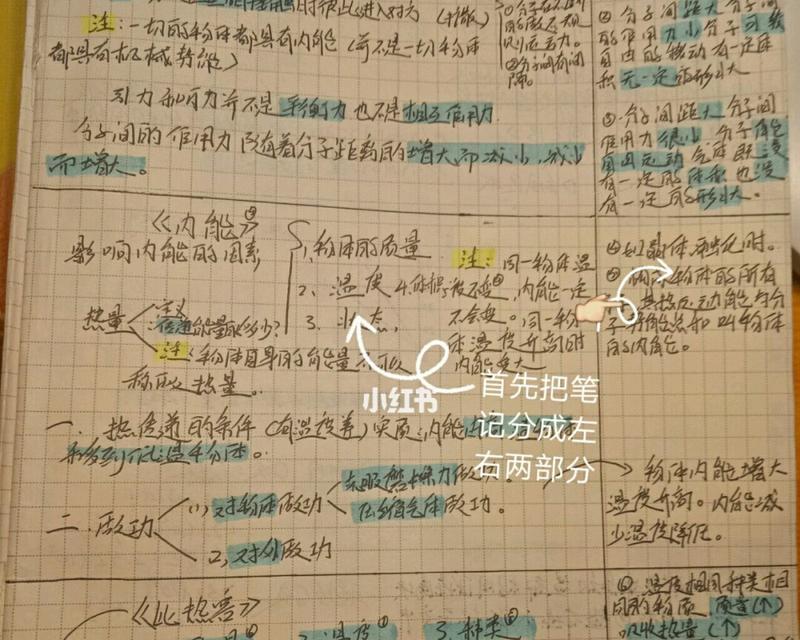 注:一切的物体都具有内能(并不是一切物体
都具有机械势能)
引力和斥力并不是平衡力也不是相互作用力
分子间的作用力随着分子距离的增大而减小,减小
而增大。
分子间距大分子间
的作用力小分子可以
自由的移动有一定体
积无一定的形状
③分子间距大分子间
作用力很小分子能
自由运动气体既没
有一定的体积也没
有一定的形状。
《内能》
影响内能的因素
1、物体的质量
2、温度
4、体积
3、状态,
注:同一物体温
度不变,内能一定
不会变。同一物
体温度升高时
内能变大
④如晶体熔化时。
热量
定义
传递能量的多少?
注:物体自身的能量不可以
称的以热量。
小红书
首先把笔
记分成左
右两部分
一、热传递的条件(有温度差)实质:内能
移到低温物体。
二、做功
(1)对物体做功
克服摩擦力做功
压缩气体做功。
2,对外做功
物体内能增大
温度升高。内能减
少温度降低。
《比热容》
2、温度
3、种类
①温度相同种类相
同的物质,质量(↑)
吸收热量(↑)